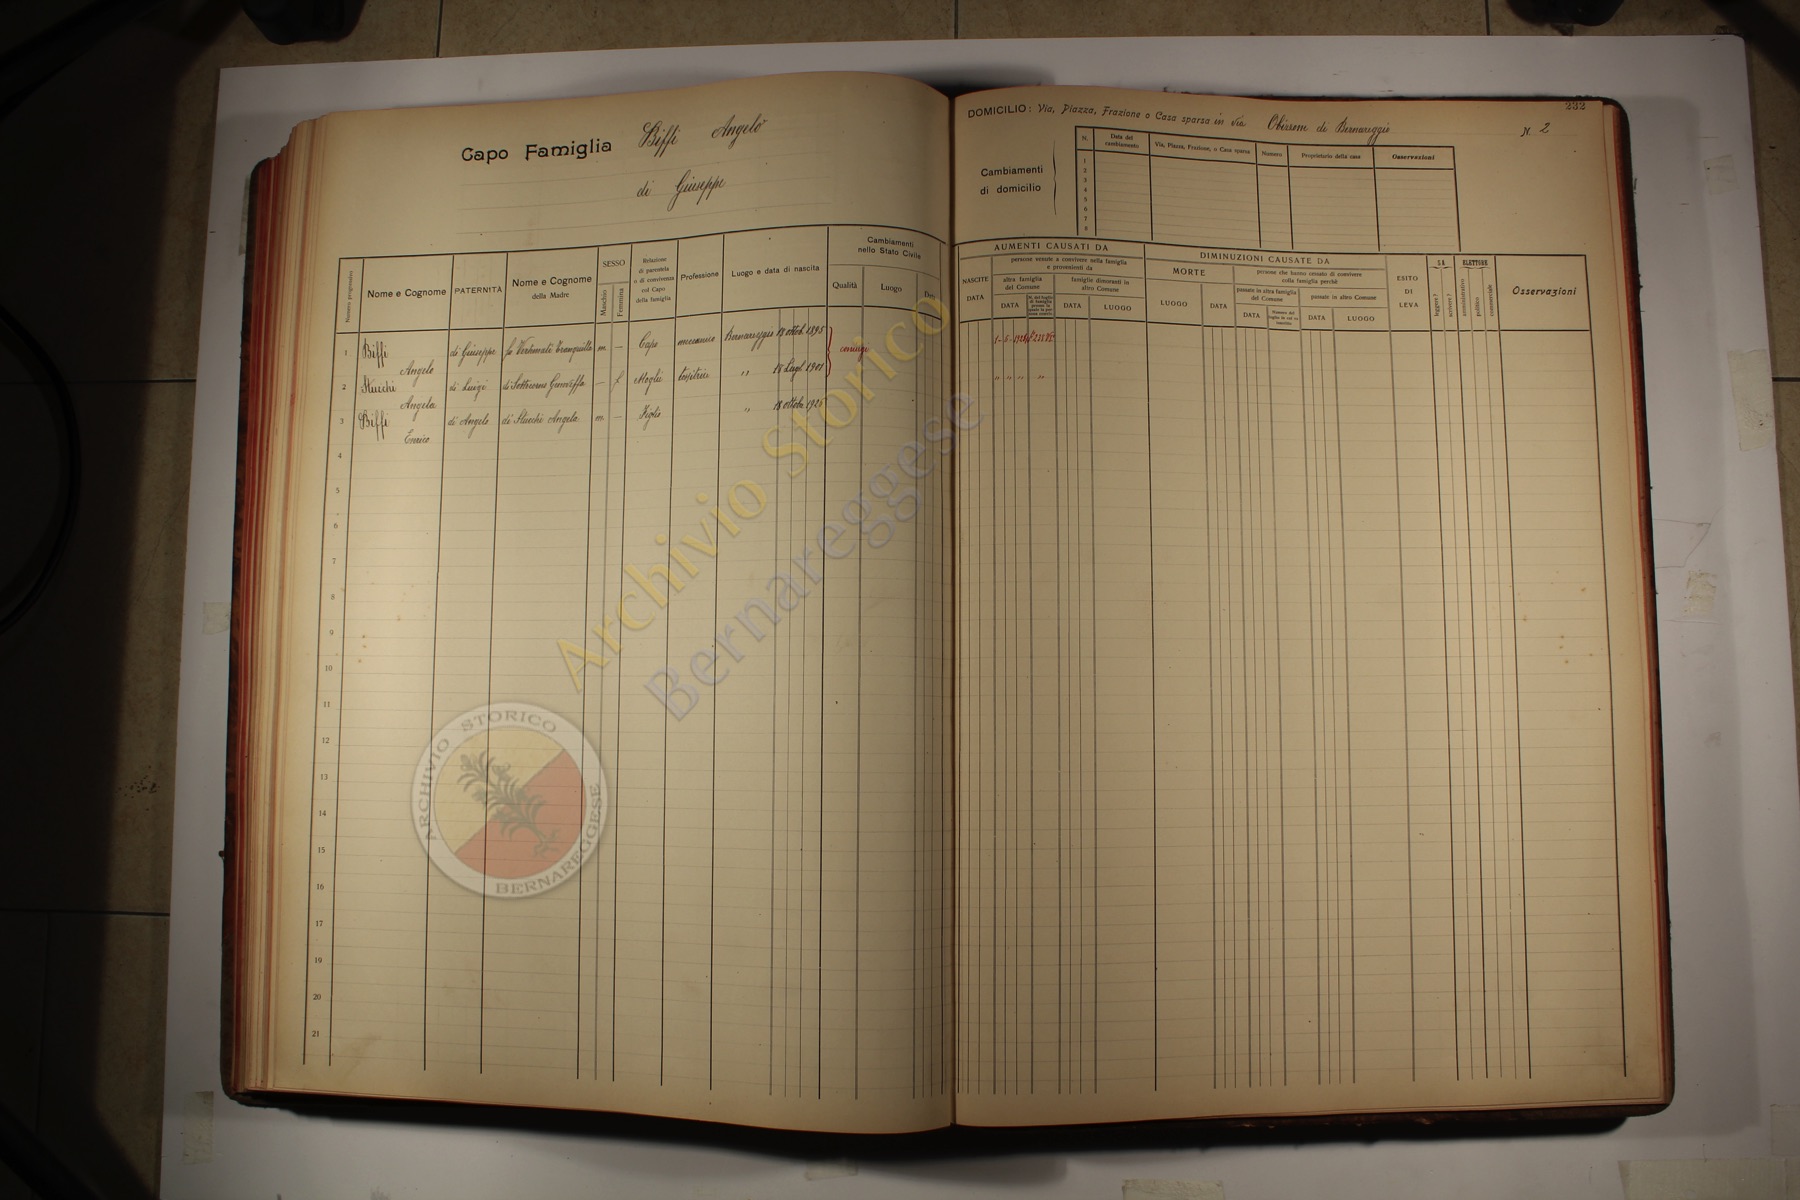 232
Capo Famiglia Biffi Angelo
di Giuseppe
DOMICILIO: Via, Piazza, Frazione o Casa sparsa in via
di Bernareggio N. 2
Cambiamenti
di domicilio
N. Data del cambiamento Via, Piazza, Frazione, o Casa sparsa Numero Proprietario della casa Osservazioni
1
2
3
4
5
6
7
8
Numero progressivo
Nome e Cognome
PATERNITÀ
Nome e Cognome
della Madre
SESSO
Maschio
Femmina
Relazione
di parentela
o di convivenza
col Capo
della famiglia
Professione
Luogo e data di nascita
Cambiamenti
nello Stato Civile
Qualità
Luogo
Data
AUMENTI CAUSATI DA
NASCITE
DATA
persone venute a convivere nella famiglia
e provenienti da
altra famiglia
del Comune
DATA
famiglie dimoranti in
altro Comune
DATA
LUOGO
DIMINUZIONI CAUSATE DA
MORTE
LUOGO
DATA
persone che hanno cessato di convivere
colla famiglia perchè
passate in altra famiglia
del Comune
DATA
passate in altro Comune
DATA
LUOGO
ESITO
DI
LEVA
SA
leggere?
scrivere?
ELETTORE
amministrativo
politico
commerciale
Osservazioni
1 Biffi Angelo di Giuseppe m. — Capo meccanico Bernareggio 18 ottob. 1895 coniugi
2 Stucchi Angela di Luigi — f Moglie " 18 Lugl. 1901
3 Biffi Enrico di Angelo di Stucchi Angela m. — Figlio " 18 ottobre 1926
4
5
6
7
8
9
10
11
12
13
14
15
16
17
18
19
20
21
Archivio Storico
Bernareggese
ARCHIVIO STORICO
BERNAREGGESE